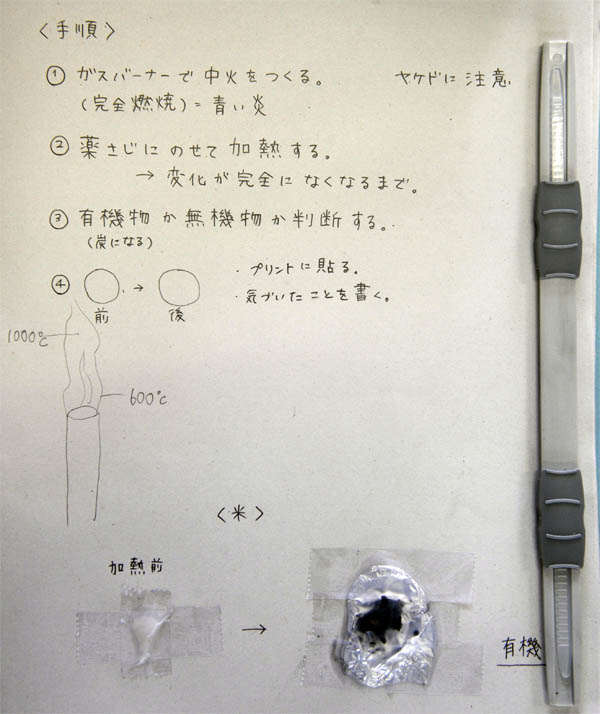 〈手順〉
① ガスバーナーで中火をつくる。 ヤケドに注意
(完全燃焼)=青い炎
② 薬さじにのせて加熱する。
→ 変化が完全になくなるまで。
③ 有機物か無機物か判断する。
(炭になる)
④ 前 → 後
・プリントに貼る。
・気づいたことを書く。
1000℃
600℃
〈米〉
加熱前
→
有機